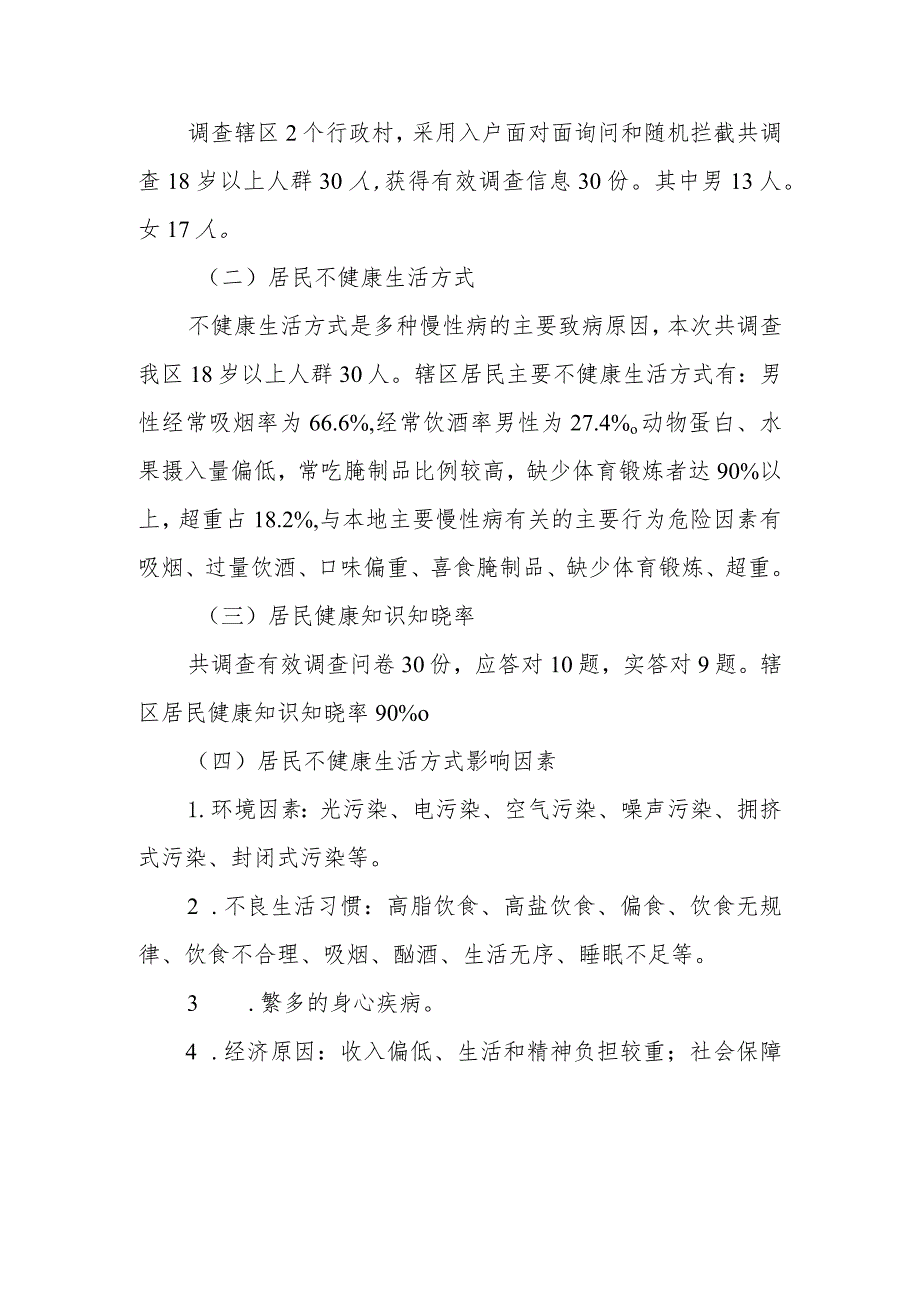 调查辖区2个行政村，采用入户面对面询问和随机拦截共调
查18岁以上人群30人,获得有效调查信息30份。其中男13人。
女17人。
（二）居民不健康生活方式
不健康生活方式是多种慢性病的主要致病原因，本次共调查
我区18岁以上人群30人。辖区居民主要不健康生活方式有：男
性经常吸烟率为66.6%,经常饮酒率男性为27.4%o动物蛋白、水
果摄入量偏低，常吃腌制品比例较高，缺少体育锻炼者达90%以
上，超重占18.2%,与本地主要慢性病有关的主要行为危险因素有
吸烟、过量饮酒、口味偏重、喜食腌制品、缺少体育锻炼、超重。
（三）居民健康知识知晓率
共调查有效调查问卷30份，应答对10题，实答对9题。辖
区居民健康知识知晓率90%o
（四）居民不健康生活方式影响因素
1.环境因素：光污染、电污染、空气污染、噪声污染、拥挤
式污染、封闭式污染等。
2 .不良生活习惯：高脂饮食、高盐饮食、偏食、饮食无规
律、饮食不合理、吸烟、酗酒、生活无序、睡眠不足等。
3 .繁多的身心疾病。
4 .经济原因：收入偏低、生活和精神负担较重；社会保障